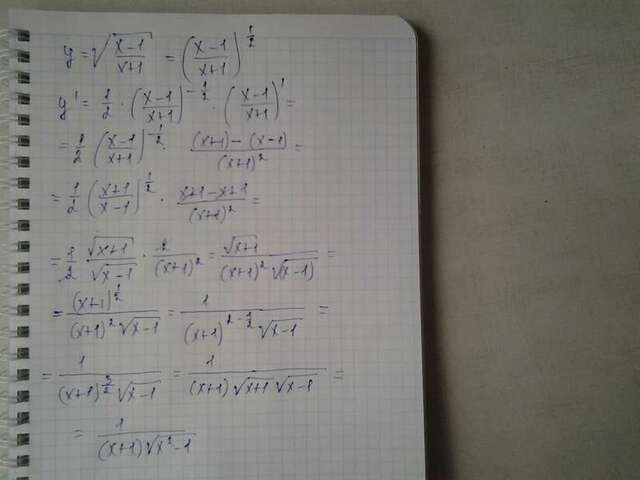 y = √((x-1)/(x+1)) = ((x-1)/(x+1))^(1/2)
y' = 1/2 · ((x-1)/(x+1))^(-1/2) · ((x-1)/(x+1))' =
= 1/2 ((x-1)/(x+1))^(-1/2) · ((x+1)-(x-1))/(x+1)² =
= 1/2 ((x+1)/(x-1))^(1/2) · (x+1-x+1)/(x+1)² =
= 1/2 √(x+1)/√(x-1) · 2/(x+1)² = √(x+1)/((x+1)² √(x-1)) =
= (x+1)^(1/2)/((x+1)² √(x-1)) = 1/((x+1)^(2-1/2) √(x-1)) =
= 1/((x+1)^(3/2) √(x-1)) = 1/((x+1) √(x+1) √(x-1)) =
= 1/((x+1) √(x²-1))